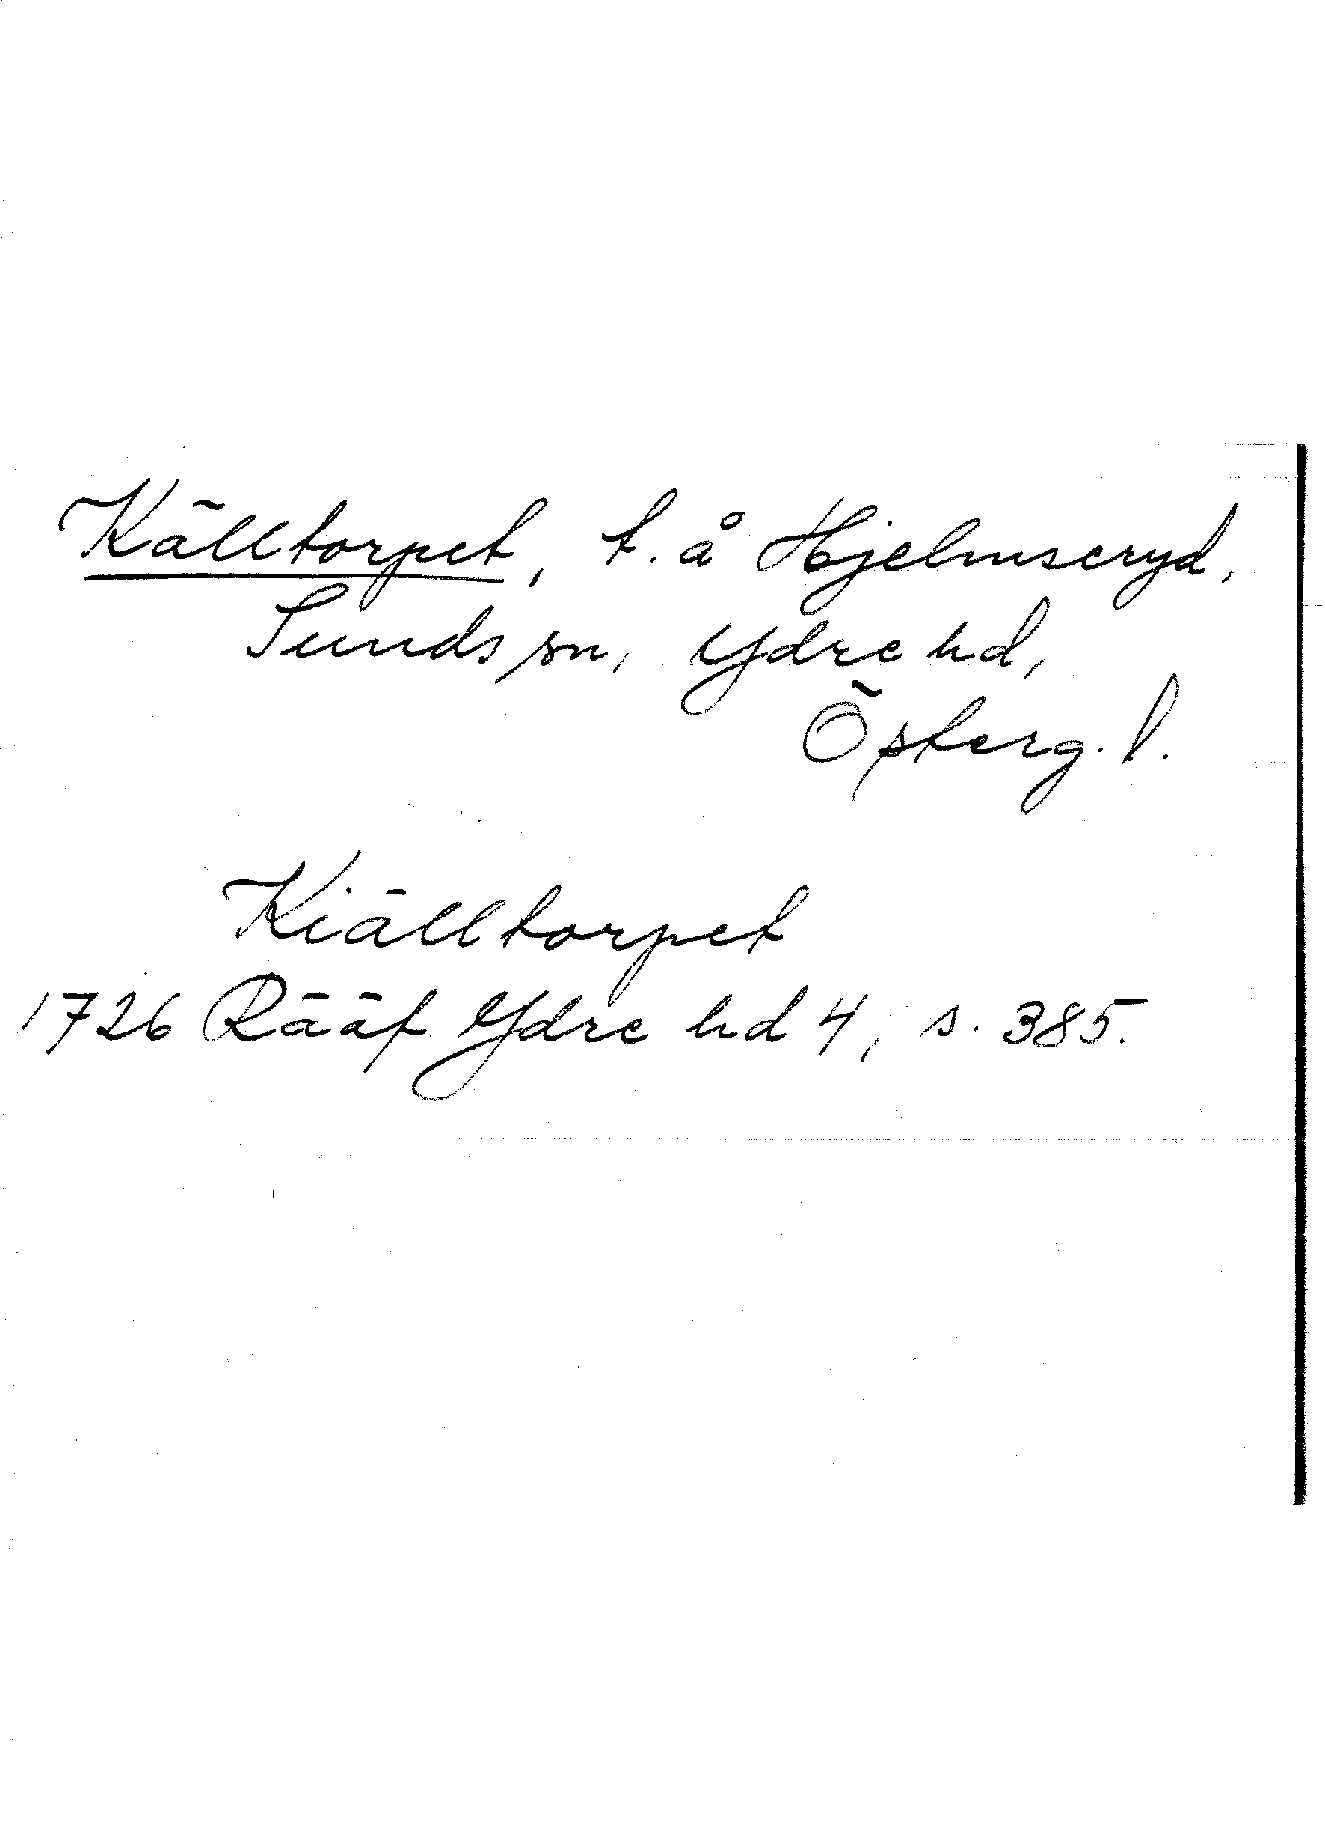 Källtorpet, t. å Hjelmseryd,
Sunds sn, Ydre hd,
Österg. l.
Kiälltorpet
1726 Rääf Ydre hd 4, s. 385.